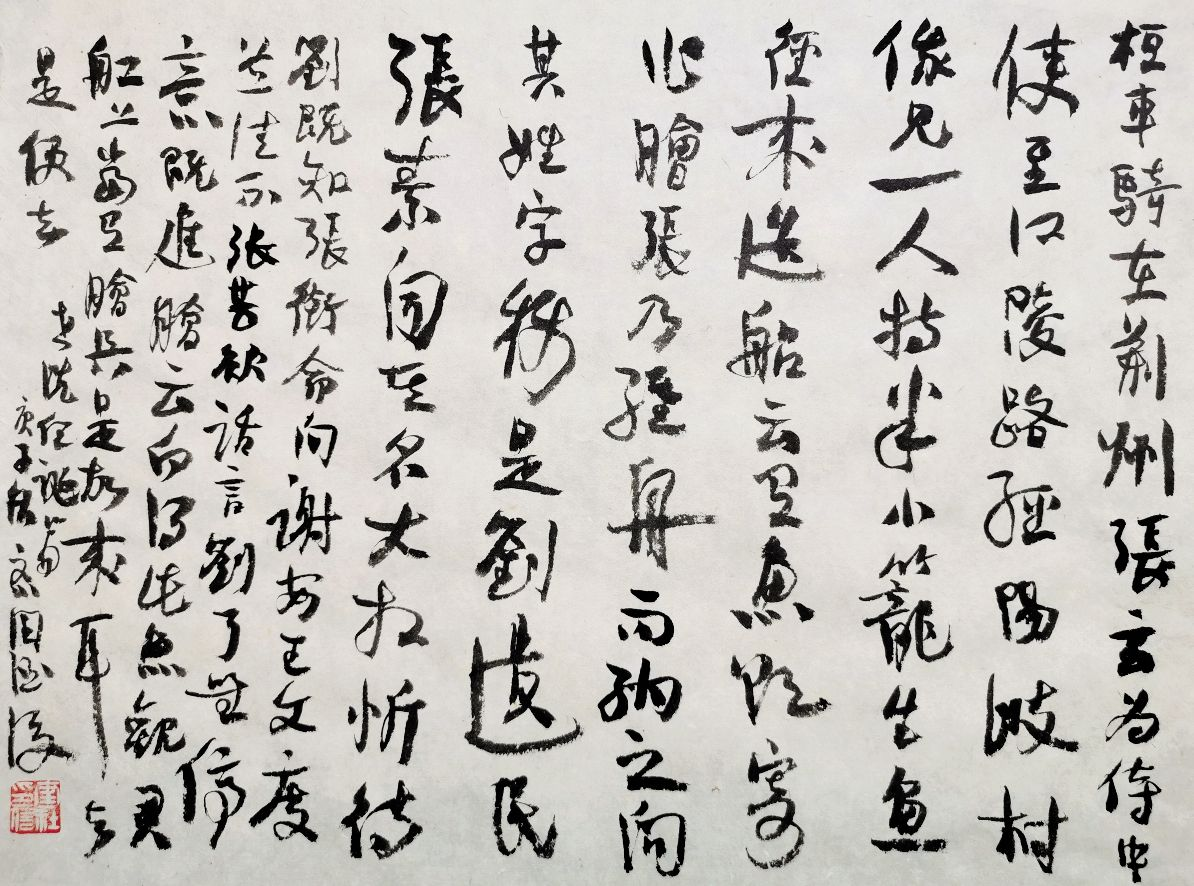 桓車騎在荊州張玄為侍中
使至江陵路經陽岐村
俄見一人持半小籠生魚
徑來造船云有魚欲寄
作膾張乃維舟而納之問
其姓字稱是劉遺民
張素聞其名大相忻待
劉既知張銜命問謝安王文度
並佳不張甚欲話言劉了無停
意既進膾云向得此魚觀君
船上當有膾具是故來耳於
是便去
世說任誕篇
庚子